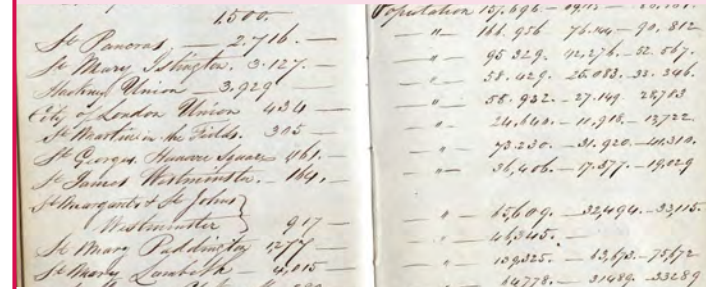 1,500.
St Pancras, — 2.716. —
St Mary Islington. 3.127. —
Hackney Union — 3.929
City of London Union 434 —
St Martin in the Fields. 305 —
St Georges Hanover Square 461. —
St James Westminster. — 164.
St Margarets & St Johns
Westminster } 917 —
St Mary Paddington 1,277 —
St Mary Lambeth — 4,015 —
Population 157.696. —
— " — 166.956 76.144 — 90.812
— " — 95.329. 42,276. — 52.567.
— " — 58.429. 25.083. — 33.346
— " — 55.932. — 27.149 28,783
— " — 24,640. — 10,918. — 13,722.
— " — 73.230. — 31.920. — 41.310.
— " — 36,406. — 17.377 — 19,029
— " — 65,609. — 32,494. — 33,115.
— " — 46,345. —
— " — 139,325. — 63,673. — 75,672
— " — 64778. — 31489. — 33289